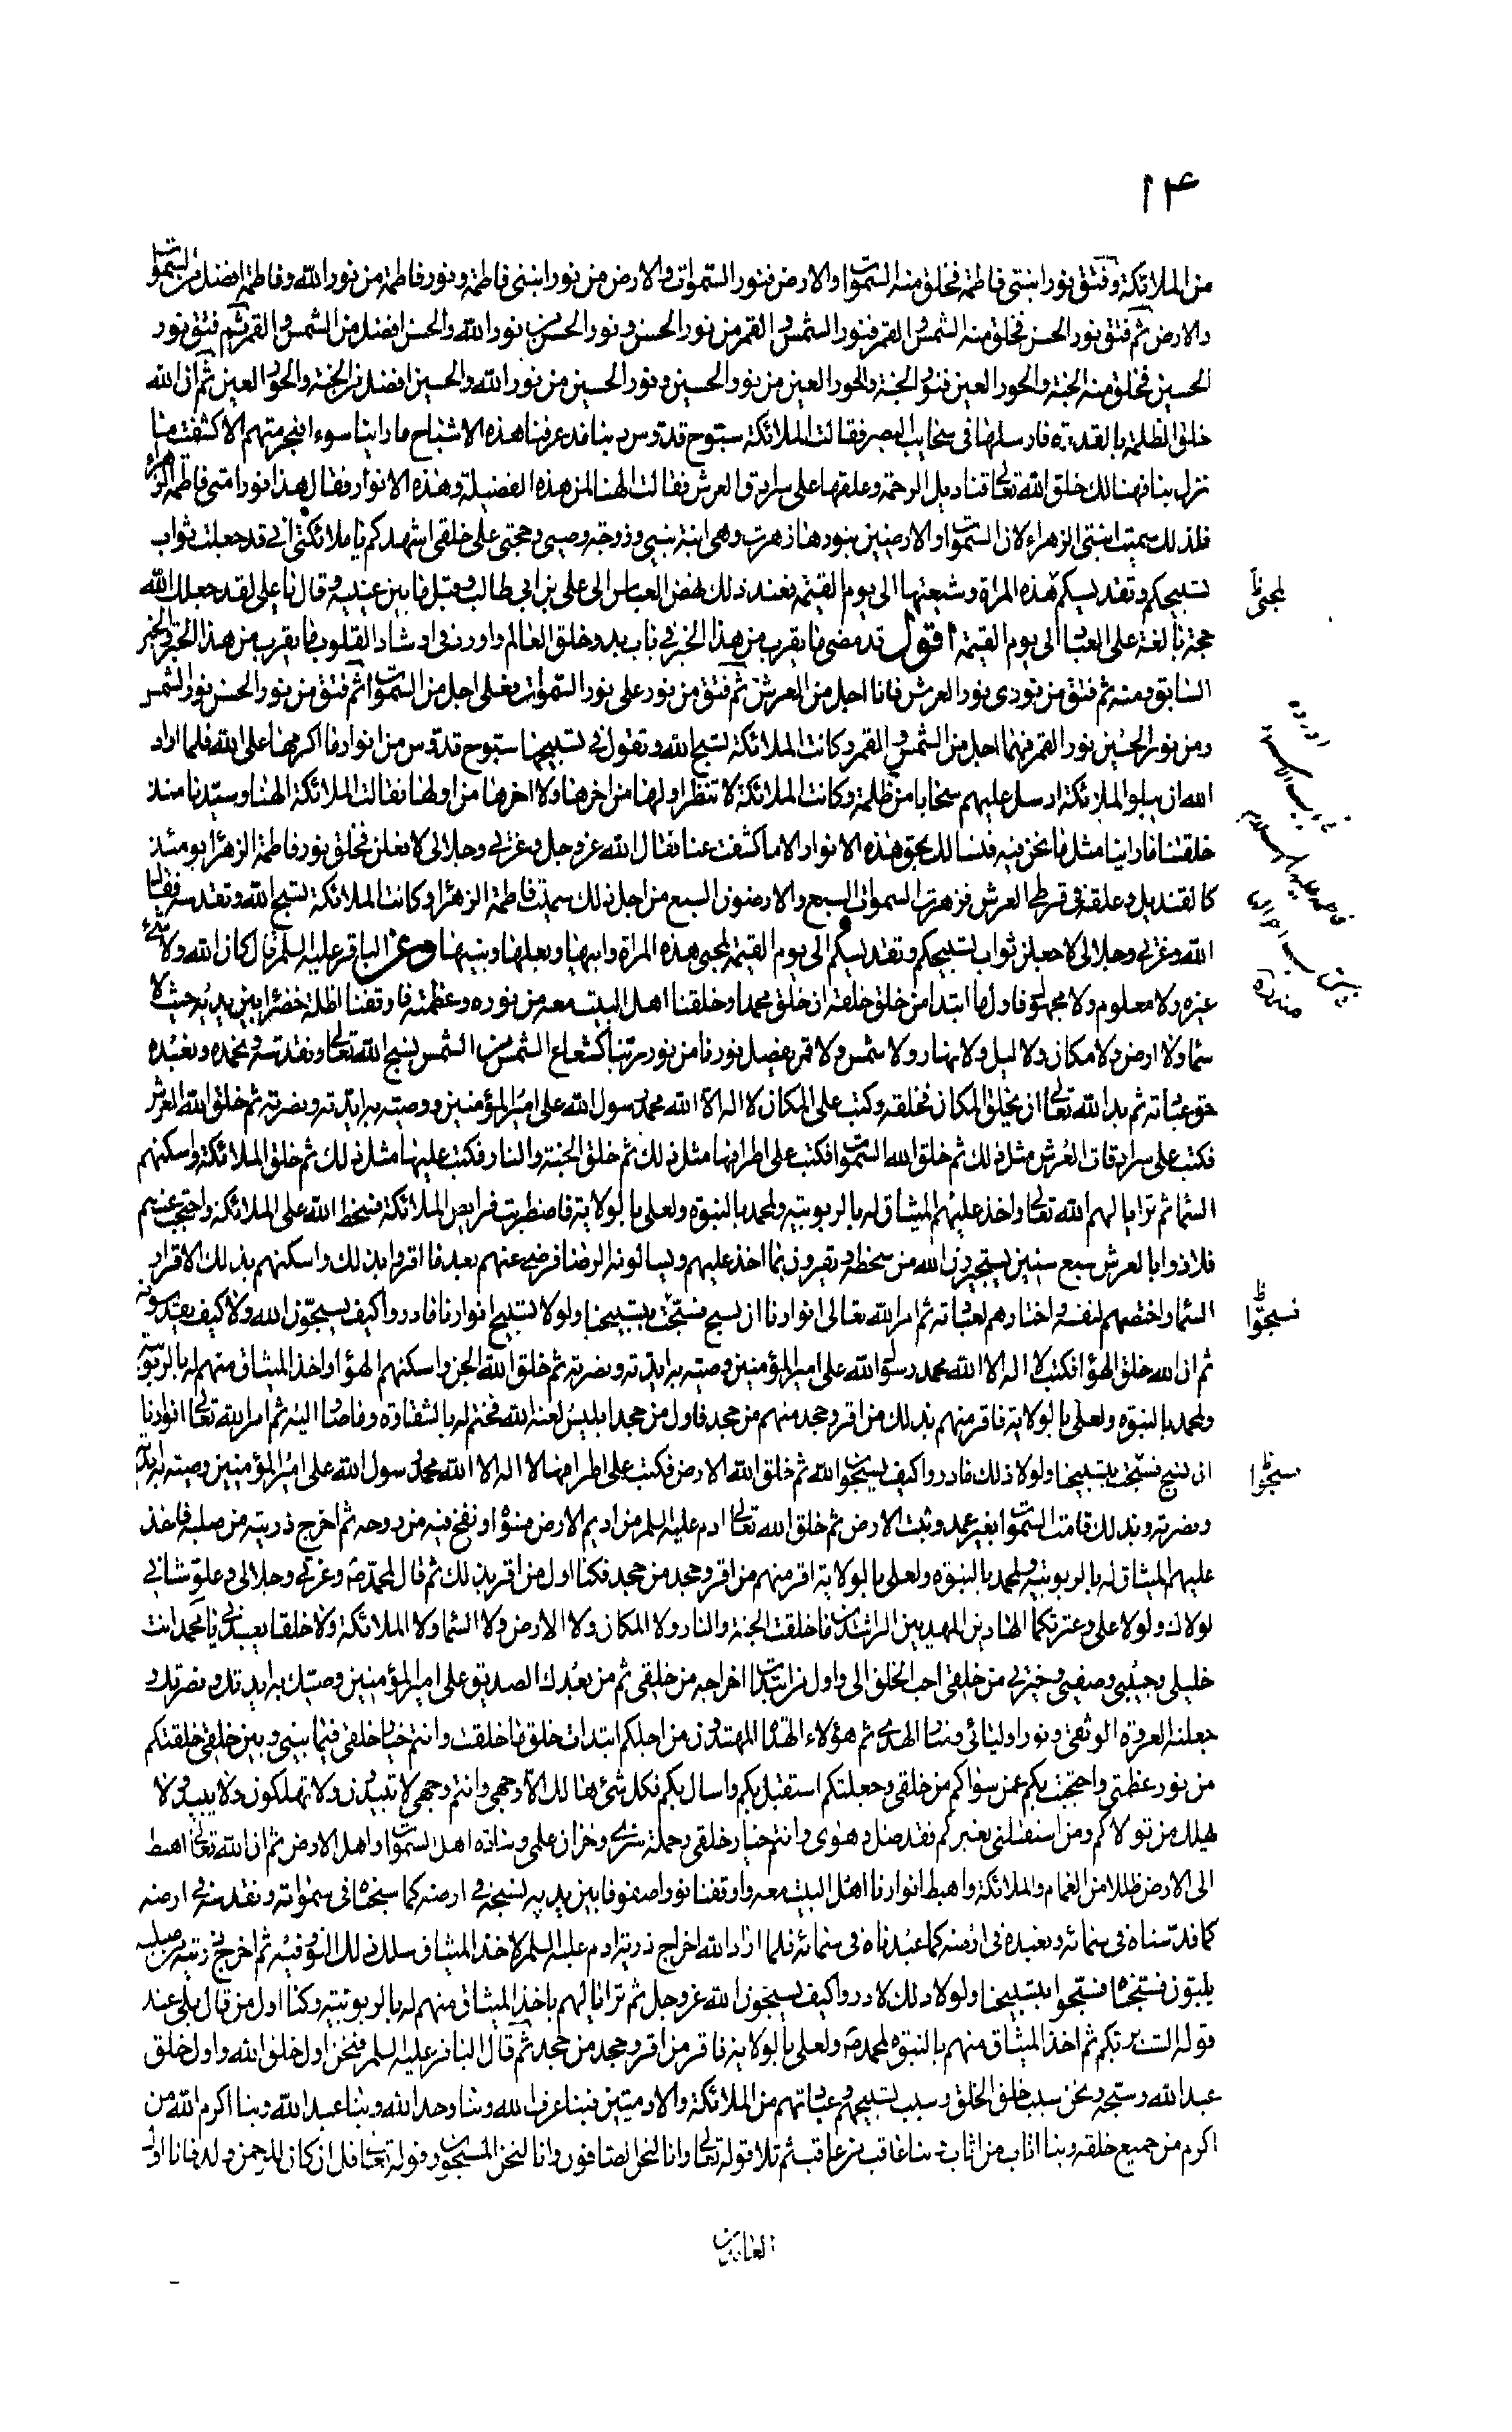 ١٤
من الملائكة وفتق نور ابنتي فاطمة فخلق منه السموات والارض فنور السموات والارض من نور ابنتي فاطمة ونور فاطمة من نور الله وفاطمة افضل من السموات
والارض ثم فتق نور الحسن فخلق منه الشمس والقمر فنور الشمس والقمر من نور الحسن ونور الحسن من نور الله والحسن افضل من الشمس والقمر ثم فتق نور
الحسين فخلق منه الجنة والحور العين فنور الجنة والحور العين من نور الحسين ونور الحسين من نور الله والحسين افضل من الجنة والحور العين ثم ان الله
خلق الظلمة بالقدرة فارسلها في سحايب البصر فقالت الملائكة سبوح قدوس ربنا مذ عرفنا هذه الاشباح ما راينا سوءا فبحرمتهم الا كشفت ما
نزل بنا فهنالك خلق الله تعالى قناديل الرحمة وعلقها على سرادق العرش فقالت الهنا لمن هذه الفضيلة وهذه الانوار فقال هذا نور امتي فاطمة الزهراء
فلذلك سميت ابنتي الزهراء لان السموات والارضين بنورها زهرت وهي ابنة نبيي وزوجة وصيي وحجتي على خلقي اشهدكم يا ملائكتي اني قد جعلت ثواب
تسبيحكم وتقديسكم هذه المراة وشيعتها الى يوم القيمة فعند ذلك نهض العباس الى علي بن ابي طالب وقبل ما بين عينيه وقال يا علي لقد جعلك الله
حجة بالغة على العباد الى يوم القيمة اقول قد مضى ما يقرب من هذا الخبر في باب بدو خلق العالم واورد في ارشاد القلوب ما يقرب من هذا الخبر في الخبر
السابق ومنه ثم فتق من نوري نور العرش فانا اجل من العرش ثم فتق من نور علي نور السموات فعلي اجل من السموات ثم فتق من نور الحسن نور الشمس
ومن نور الحسين نور القمر فهما اجل من الشمس والقمر وكانت الملائكة تسبح الله وتقول في تسبيحها سبوح قدوس من انوار ما اكرمها على الله فلما اراد
الله ان يبلو الملائكة ارسل عليهم سحابا من ظلمة وكانت الملائكة لا تنظر اولها من اخرها ولا اخرها من اولها فقالت الملائكة الهنا وسيدنا منذ
خلقتنا ما راينا مثل ما نحن فيه فنسالك بحق هذه الانوار الا ما كشفت عنا فقال الله عز وجل وعزتي وجلالي لافعلن فخلق نور فاطمة الزهرا يومئذ
كالقنديل وعلقه في قرط العرش فزهرت السموات السبع والارضون السبع من اجل ذلك سميت فاطمة الزهرا وكانت الملائكة تسبح الله وتقدسه فقال
الله وعزتي وجلالي لاجعلن ثواب تسبيحكم وتقديسكم الى يوم القيمة لمحبي هذه المراة وابيها وبعلها وبنيها وعن الباقر عليه السلم قال كان الله ولا شئ
غيره ولا معلوم ولا مجهول فاول ما ابتدا من خلق خلقه ان خلق محمدا وخلقنا اهل البيت معه من نوره وعظمته فاوقفنا اظلة خضرا بين يديه حيث لا
سما ولا ارض ولا مكان ولا ليل ولا نهار ولا شمس ولا قمر يفصل نورنا من نور ربنا كشعاع الشمس من الشمس نسبح الله تعالى ونقدسه ونحمده ونعبده
حق عبادته ثم بدا لله تعالى ان يخلق المكان فخلقه وكتب على المكان لا اله الا الله محمد رسول الله علي امير المؤمنين ووصيه به ايدته ونصرته ثم خلق الله العرش
فكتب على سرادقات العرش مثل ذلك ثم خلق الله السموات فكتب على اطرافها مثل ذلك ثم خلق الجنة والنار فكتب عليها مثل ذلك ثم خلق الملائكة واسكنهم
السما ثم ترايا لهم الله تعالى واخذ عليهم الميثاق له بالربوبية ولمحمد بالنبوة ولعلي بالولاية فاضطربت فرايص الملائكة فسخط الله على الملائكة واحتجب عنهم
فلاذوا بالعرش سبع سنين يستجيرون الله من سخطه ويقرون بما اخذ عليهم ويسالونه الرضا فرضي عنهم بعد ما اقروا بذلك واسكنهم بذلك الاقرار
السما واختصهم لنفسه واختارهم لعبادته ثم امر الله تعالى انوارنا ان تسبح فسبحت بتسبيحنا ولولا تسبيح انوارنا ما دروا كيف يسبحون الله ولا كيف يقدسونه
ثم ان الله خلق الهوا فكتب لا اله الا الله محمد رسول الله علي امير المؤمنين وصيه به ايدته ونصرته ثم خلق الله الجن واسكنهم الهوا واخذ الميثاق منهم له بالربوبية
ولمحمد بالنبوة ولعلي بالولاية فاقر منهم بذلك من اقر وجحد منهم من جحد فاول من جحد ابليس لعنه الله فختم له بالشقاوة وما صار اليه ثم امر الله تعالى انوارنا
ان تسبح فسبحت بتسبيحنا ولولا ذلك ما دروا كيف يسبحوا الله ثم خلق الله الارض فكتب على اطرافها لا اله الا الله محمد رسول الله علي امير المؤمنين وصيه به ايدته
ونصرته وبذلك قامت السموات بغير عمد وثبت الارض ثم خلق الله تعالى ادم عليه السلم من اديم الارض فسواه ونفخ فيه من روحه ثم اخرج ذريته من صلبه فاخذ
عليهم الميثاق له بالربوبية ولمحمد بالنبوة ولعلي بالولاية اقر منهم من اقر وجحد من جحد فكنا اول من اقر بذلك ثم قال لمحمد ص وعزتي وجلالي وعلو شاني
لولاك ولولا علي وعترتكما الهادين المهديين الراشدين ما خلقت الجنة والنار ولا المكان ولا الارض ولا السما ولا الملائكة ولا خلقا يعبدني يا محمد انت
خليلي وحبيبي وصفيي وخيرتي من خلقي احب الخلق الي واول من ابتدات اخراجه من خلقي ثم من بعدك الصديق علي امير المؤمنين وصيك به ايدتك ونصرتك
جعلته العروة الوثقى ونور اوليائي ومنار الهدى ثم هؤلاء الهداة المهتدون من اجلكم ابتدات خلق ما خلقت وانتم خيار خلقي فيما بيني وبين خلقي خلقتكم
من نور عظمتي واحتجبت بكم عمن سواكم من خلقي وجعلتكم استقبل بكم واسال بكم فكل شئ هالك الا وجهي وانتم وجهي لا تبيدون ولا تهلكون ولا يبيد ولا
يهلك من تولاكم ومن استقبلني بغيركم فقد ضل وهوى وانتم خيار خلقي وحملة سري وخزان علمي وسادة اهل السموات واهل الارض ثم ان الله تعالى اهبط
الى الارض ظللا من الغمام والملائكة واهبط انوارنا اهل البيت معه واوقفنا نورا صفوفا بين يديه نسبحه في ارضه كما سبحناه في سمواته ونقدسه في ارضه
كما قدسناه في سمائه ونعبده في ارضه كما عبدناه في سمائه فلما اراد الله اخراج ذرية ادم عليه السلم لاخذ الميثاق سلك ذلك النور فيه ثم اخرج ذريته من صلبه
يلبون فسبحناه فسبحوا بتسبيحنا ولولا ذلك لا دروا كيف يسبحون الله عز وجل ثم ترايا لهم باخذ الميثاق منهم له بالربوبية وكنا اول من قال بلى عند
قوله الست بربكم ثم اخذ الميثاق منهم بالنبوة لمحمد ص ولعلي بالولاية فاقر من اقر وجحد من جحد ثم قال الباقر عليه السلم فنحن اول خلق الله واول خلق
عبد الله وسبحه ونحن سبب خلق الخلق وسبب تسبيحهم وعبادتهم من الملائكة والادميين فبنا عرف الله وبنا وحد الله وبنا عبد الله وبنا اكرم الله من
اكرم من جميع خلقه وبنا اثاب من اثاب وبنا عاقب من عاقب ثم تلا قوله تعالى وانا لنحن الصافون وانا لنحن المسبحون وقوله تعالى قل ان كان للرحمن ولد فانا اول
العابدين
لمحبي
فسبحوا
فسبحوا